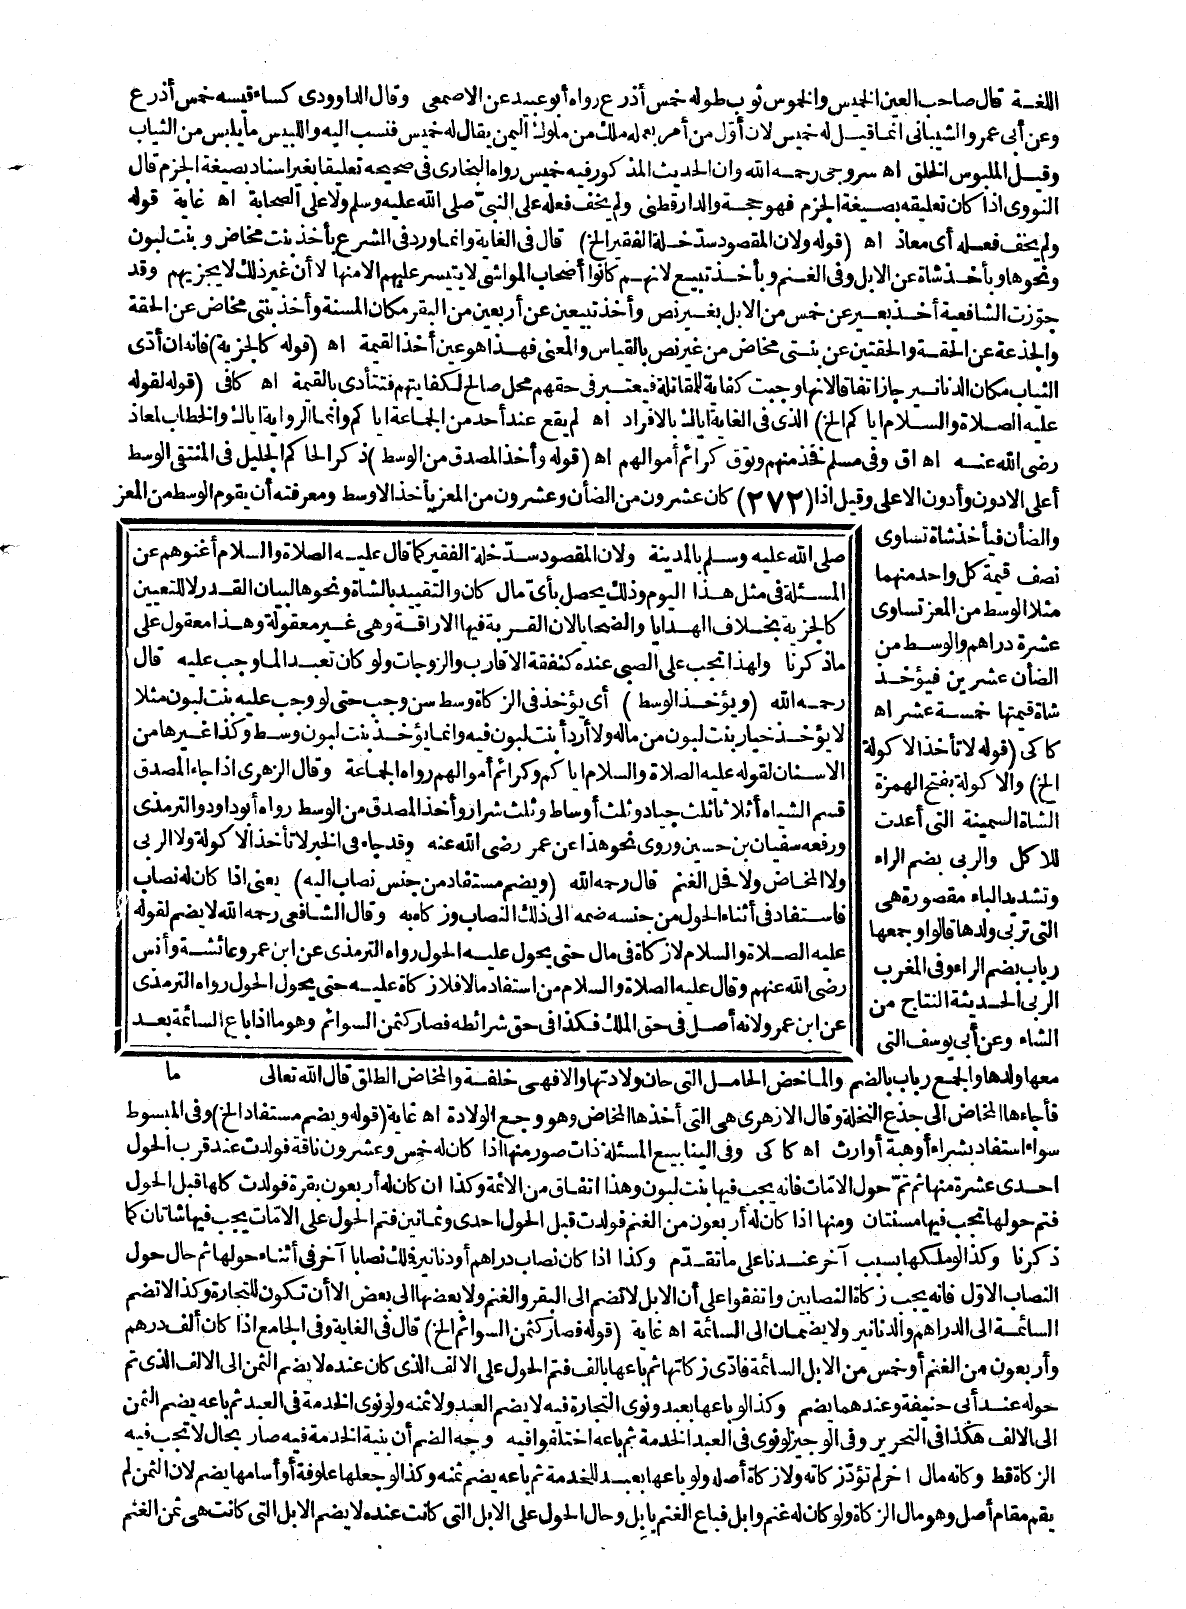 اللغة قال صاحب العين الخميس والخموس ثوب طوله خمس أذرع رواه أبو عبيد عن الاصمعى وقال الداوودى كساء قيسه خمس أذرع
وعن أبى عمرو الشيبانى انما قيل له خميس لان أوّل من أمر بعمله ملك من ملوك اليمن يقال له خميس فنسب اليه واللبيس ما يلبس من الثياب
وقيل الملبوس الخلق اه سروجى رحمه الله وان الحديث المذكور فيه خميس رواه البخارى فى صحيحه تعليقا بغير اسناد بصيغة الجزم قال
النووى اذا كان تعليقه بصيغة الجزم فهو حجة والدارقطنى ولم يخف فعله على النبىّ صلى الله عليه وسلم ولا على الصحابة اه غاية قوله
ولم يخف فعله أى معاذ اه (قوله ولان المقصود سدّ خلة الفقير الخ) قال فى الغاية وانما ورد فى الشرع بأخذ بنت مخاض وبنت لبون
ونحوها وبأخذ شاة عن الابل وفى الغنم وبأخذ تبيع لانهم كانوا أصحاب المواشى لا يتيسر عليهم الا منها لا أن غير ذلك لا يجزيهم وقد
جوّزت الشافعية أخذ بعير عن خمس من الابل بغير نص وأخذ تبيعين عن أربعين من البقر مكان المسنة وأخذ بنتى مخاض عن الحقة
والجذعة عن الحقة والحقتين عن بنتى مخاض من غير نص بالقياس والمعنى فهذا هو عين أخذ القيمة اه (قوله كالجزية) فانه ان أدّى
الثياب مكان الدنانير جاز اتفاقا لانها وجبت كفاية للمقاتلة فيعتبر فى حقهم محل صالح لكفايتهم فتتأدى بالقيمة اه كافى (قوله لقوله
عليه الصلاة والسلام ايا كم الخ) الذى فى الغاية اياك بالافراد اه لم يقع عند أحد من الجماعة ايا كم وانما الرواية اياك والخطاب لمعاذ
رضى الله عنه اه اق وفى مسلم فخذ منهم وتوق كرائم أموالهم اه (قوله وأخذ المصدق من الوسط) ذكر الحاكم الجليل فى المنتقى الوسط
أعلى الادون وأدون الاعلى وقيل اذا (٢٧٢) كان عشرون من الضأن وعشرون من المعز يأخذ الاوسط ومعرفته أن يقوم الوسط من المعز
والضأن فيأخذ شاة تساوى
نصف قيمة كل واحد منهما
مثلا الوسط من المعز تساوى
عشرة دراهم والوسط من
الضأن عشرين فيؤخذ
شاة قيمتها خمسة عشر اه
كاكى (قوله لا تأخذ الاكولة
الخ) والاكولة بفتح الهمزة
الشاة السمينة التى أعدت
للاكل والربى بضم الراء
وتشديد الباء مقصورة هى
التى تربى ولدها قالوا وجمعها
رباب بضم الراء وفى المغرب
الربى الحديثة النتاج من
الشاء وعن أبى يوسف التى
صلى الله عليه وسلم بالمدينة ولان المقصود سدّ خلة الفقير كما قال عليه الصلاة والسلام أغنوهم عن
المسئلة فى مثل هذا اليوم وذلك يحصل بأىّ مال كان والتقييد بالشاة ونحوها لبيان القدر لا للتعيين
كالجزية بخلاف الهدايا والضحايا لان القربة فيها الاراقة وهى غير معقولة وهذا معقول على
ما ذكرنا ولهذا تجب على الصبى عنده كنفقة الاقارب والزوجات ولو كان تعبد الما وجب عليه قال
رحمه الله (ويؤخذ الوسط) أى يؤخذ فى الزكاة وسط سن وجب حتى لو وجب عليه بنت لبون مثلا
لا يؤخذ خيار بنت لبون من ماله ولا أردأ بنت لبون فيه وانما يؤخذ بنت لبون وسط وكذا غيرها من
الاسنان لقوله عليه الصلاة والسلام ايا كم وكرائم أموالهم رواه الجماعة وقال الزهرى اذا جاء المصدق
قسم الشياه أثلاثا ثلث جياد وثلث أوساط وثلث شرار وأخذ المصدق من الوسط رواه أبو داود والترمذى
ورفعه سفيان بن حسين وروى نحو هذا عن عمر رضى الله عنه وقد جاء فى الخبر لا تأخذ الاكولة ولا الربى
ولا الماخض ولا فحل الغنم قال رحمه الله (ويضم مستفاد من جنس نصاب اليه) يعنى اذا كان له نصاب
فاستفاد فى أثناء الحول من جنسه ضمه الى ذلك النصاب وزكاه به وقال الشافعى رحمه الله لا يضم لقوله
عليه الصلاة والسلام لا زكاة فى مال حتى يحول عليه الحول رواه الترمذى عن ابن عمر وعائشة وأنس
رضى الله عنهم وقال عليه الصلاة والسلام من استفاد مالا فلا زكاة عليه حتى يحول الحول رواه الترمذى
عن ابن عمر ولانه أصل فى حق الملك فكذا فى حق شرائطه فصار كثمن السوائم وهو ما اذا باع السائمة بعد
ما
معها ولدها والجمع رباب بالضم والماخض الحامل التى حان ولادتها والا فهى خلفة والمخاض الطلق قال الله تعالى
فأجاءها المخاض الى جذع النخلة وقال الازهرى هى التى أخذها المخاض وهو وجع الولادة اه غاية (قوله ويضم مستفاد الخ) وفى المبسوط
سواء استفاد بشراء أو هبة أو ارث اه كاكى وفى الينابيع المسئلة ذات صور منها اذا كان له خمس وعشرون ناقة فولدت عند قرب الحول
احدى عشرة منها ثم تمّ حول الامّات فانه يجب فيها بنت لبون وهذا اتفاق من الائمة وكذا ان كان له أربعون بقرة فولدت كلها قبل الحول
فتم حولها تجب فيها مسنتان ومنها اذا كان له أربعون من الغنم فولدت قبل الحول احدى وثمانين فتم الحول على الامّات يجب فيها شاتان كما
ذكرنا وكذا لو ملكها بسبب آخر عندنا على ما تقدّم وكذا اذا كان نصاب دراهم أو دنانير فملك نصابا آخر فى أثناء حولها ثم حال حول
النصاب الاوّل فانه يجب زكاة النصابين واتفقوا على أن الابل لا تضم الى البقر والغنم ولا بعضها الى بعض الا أن تكون للتجارة وكذا لا تضم
السائمة الى الدراهم والدنانير ولا يضمان الى السائمة اه غاية (قوله فصار كثمن السوائم الخ) قال فى الغاية وفى الجامع اذا كان ألف درهم
وأربعون من الغنم أو خمس من الابل السائمة فادّى زكاتها ثم باعها بالف فتم الحول على الالف الذى كان عنده لا يضم الثمن الى الالف الذى تم
حوله عند أبى حنيفة وعندهما يضم وكذا لو باعها بعبد ونوى التجارة فيه لا يضم العبد ولا ثمنه ولو نوى الخدمة فى العبد ثم باعه يضم الثمن
الى الالف هكذا فى التحرير وفى الوجيز لو نوى فى العبد الخدمة ثم باعه اختلفوا فيه وجه الضم أن بنية الخدمة فيه صار بحال لا تجب فيه
الزكاة قط وكانه مال اخر لم تؤدّ زكاته ولا زكاة أصله ولو باعها بعبد للخدمة ثم باعه يضم ثمنه وكذا لو جعلها علوفة أو أسامها يضم لان الثمن لم
يقم مقام أصل وهو مال الزكاة ولو كان له غنم وابل فباع الغنم بابل وحال الحول على الابل التى كانت عنده لا يضم الابل التى كانت هى ثمن الغنم